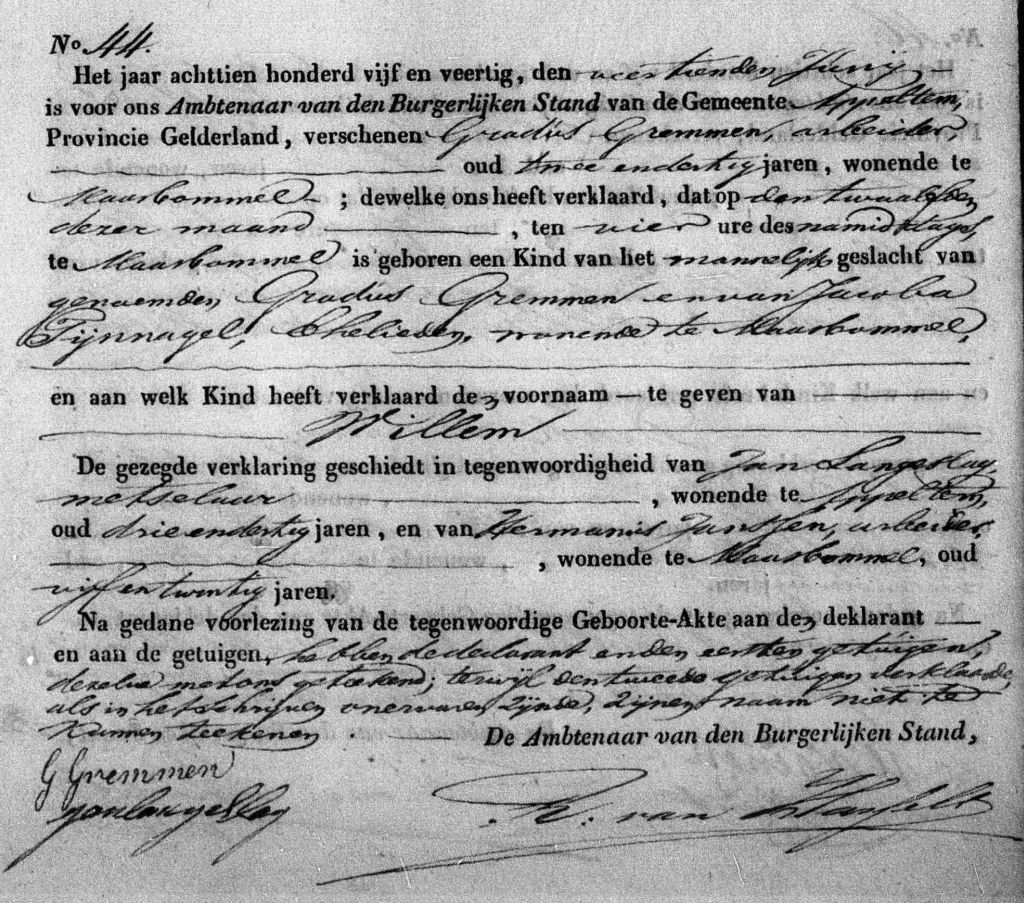 No. 44.
Het jaar achttien honderd vijf en veertig, den veertienden Junij
is voor ons Ambtenaar van den Burgerlijken Stand van de Gemeente Appeltern,
Provincie Gelderland, verschenen Gradus Gremmen, arbeider,
oud twee endertig jaren, wonende te
Maasbommel ; dewelke ons heeft verklaard, dat op den twaalfden
dezer maand , ten vier ure des namiddags,
te Maasbommel is geboren een Kind van het mannelijk geslacht van
genoemden Gradus Gremmen en van Jacoba
Tijnnagel, Ehelieden, wonende te Maasbommel,
en aan welk Kind heeft verklaard de voornaam te geven van
Willem
De gezegde verklaring geschiedt in tegenwoordigheid van Jan Langeslag,
metselaar , wonende te Appeltern,
oud drie endertig jaren, en van Hermanus Janssen, arbeider,
, wonende te Maasbommel, oud
vijf en twintig jaren.
Na gedane voorlezing van de tegenwoordige Geboorte-Akte aan de deklarant
en aan de getuigen, hebben de declarant en den eersten getuigen,
dezelve met ons geteekend; terwijl den tweede getuigen verklaarde,
als in het schrijven onervaren zijnde, zijnen naam niet te
kunnen teekenen
De Ambtenaar van den Burgerlijken Stand,
G Gremmen
Jan Langeslag
van Hasselt